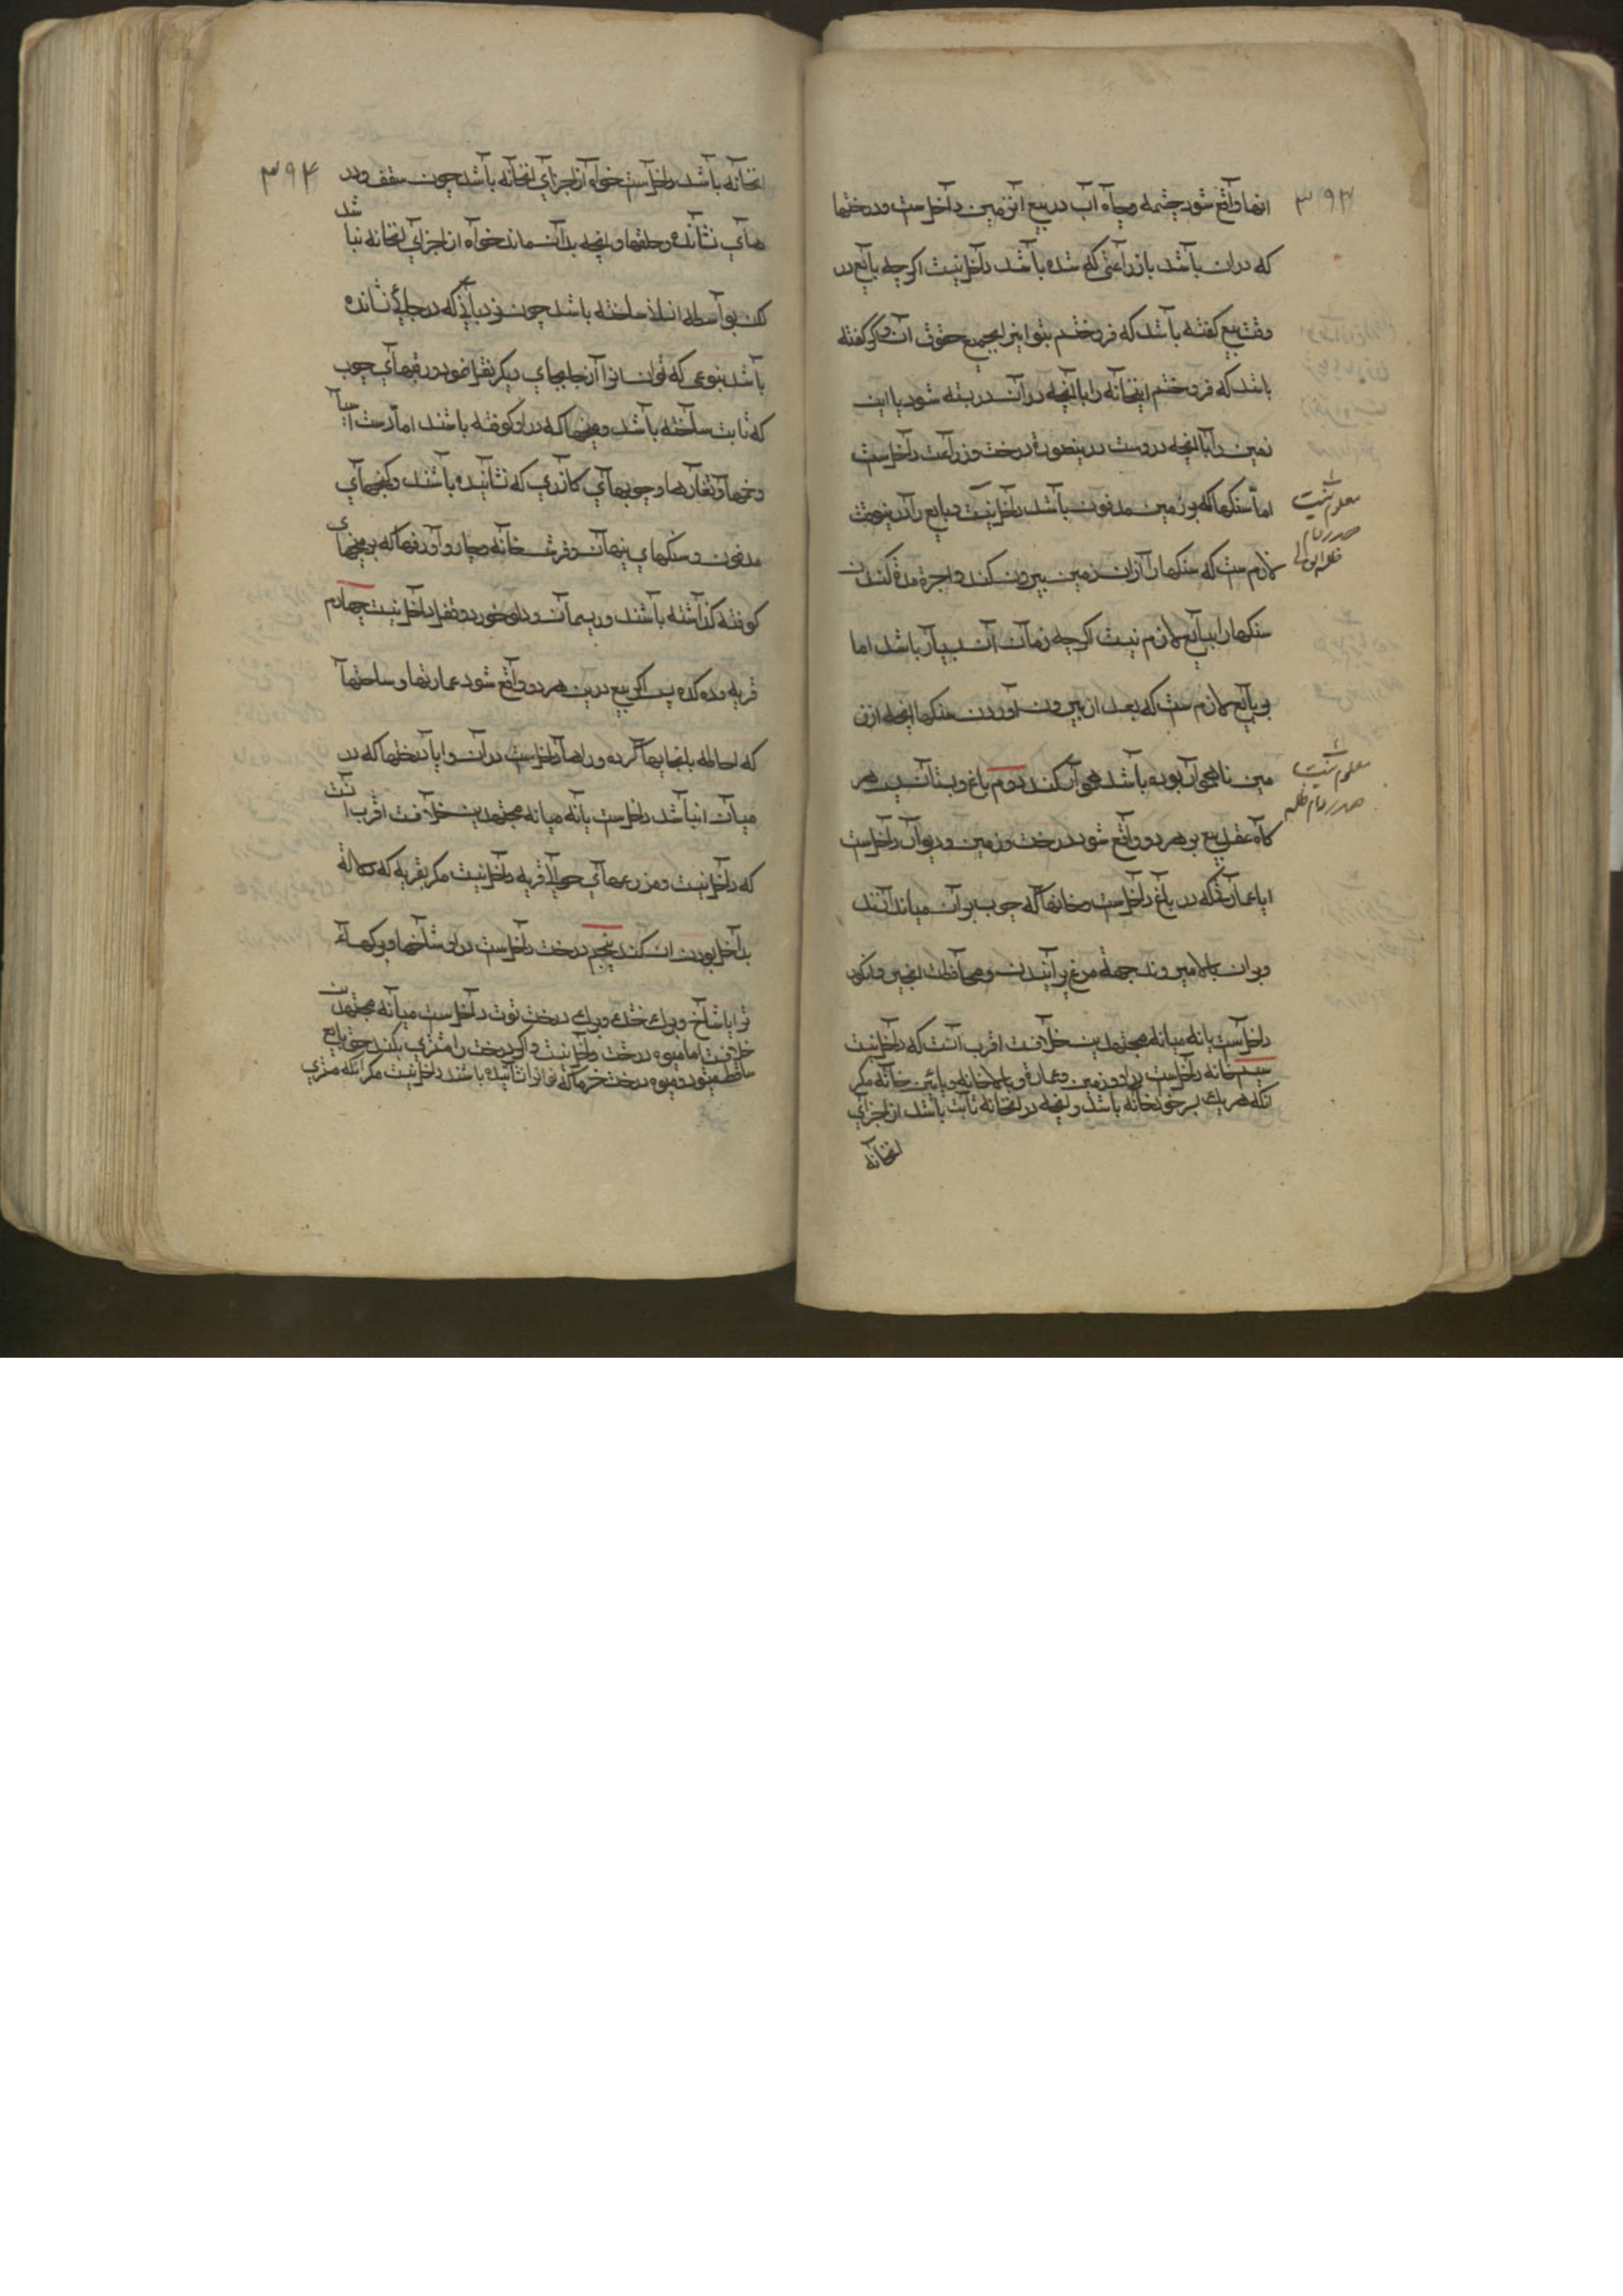 ۳۹۳
انها واقع شود چشمه و چاه آب در بیع آنزمین داخلست و درختها
که دران باشد یا زراعتی که شده باشد داخل نیست اکرچه بایع در
وقت بیع کفته باشد که فروختم بتو این را بجمیع حقوق آن و اکر کفته
باشد که فروختم اینخانه را با آنچه در آن در بسته شود یا این
زمین را با آنچه دروست درینصورة درخت و زراعت داخلست
اما سنکها که در زمین مدفون باشد داخل نیست و بایع را درینوقت
لازمست که سنکها را ازان زمین بیرون کند و اجرة مدة کندن
سنکها را ببایع لازم نیست اکرچه زمان آن بسیار باشد اما
بر بایع لازمست که بعد از بیرون آوردن سنکها آنچه از ز
مین ناهموار بوده باشد هموار کند دوم باغ و بستان پس هر
کاه عقد بیع بر هر دو واقع شود درخت و زمین و دیوار داخلست
ایا عمارتی که در باغ داخلست و خانها که چوب بر آن میاندازند
و بران بالا میروند جهة مرغ پرانیدن و محافظت انجیر و انکور
داخلست یا نه میانه مجتهدین خلافست اقرب آنست که داخل نیست
سیم خانه داخلست در او زمین و عمارة و بالاخانه و پائین خانه مکر
آنکه هر یک سر خود خانه باشد و آنچه در آنخانه ثابت باشد از اجزای
انخانه
معلوم نیست
صدر دام
ظله العالی
معلوم نیست
صدر دام ظله
۳۹۴
انخانه باشد داخلست خواه از اجزای انخانه باشد چون سقف و در
های نشانده و حلقها و آنچه بدان ماند خواه از اجزای انخانه نبا
شد
لکن بواسطه انبا ساخته باشد چون نردبانی که در جائی نشانده
باشد بنوعی که نتوان انرا از جایهای دیکر نقل نمود و رفهای چوب
که ثابت ساخته باشد و میخها که در او کوفته باشند اما دست آسیا
و خمها و تغارها و چوبهای کازری که نشانیده باشند و کنجهای
مدفون و سنکهای پنهان و فرش خانه و چار و آورفها که بر میخهای
کوفته کذاشته باشند و ریسمان و دلو خورد و قفل داخل نیست چهارم
قریه و دهکده پس اکر بیع درین هر دو واقع شود عمارتها و ساحتها
که احاطه بانجایها کرده و راهها داخلست در آن و ایا درختها که در
میان انباشد داخلست یا نه میانه مجتهدین خلافست اقرب آنست
که داخل نیست و مزرعهای حوالا قریه داخل نیست مکر بقرینه که دلالة
بداخل بودن ان کند پنجم درخت داخلست در او شاخها و برکهاء
تر ایا شاخ و برک خشک و برک درخت توت داخلست میانه مجتهدین
خلافست اما میوه درخت داخل نیست و اکر درخت را مشتری بکند حق بایع
ساقط میشود و میوه درخت خرما که نو انرا نشانیده باشند داخل نیست مکر آنکه مشتری